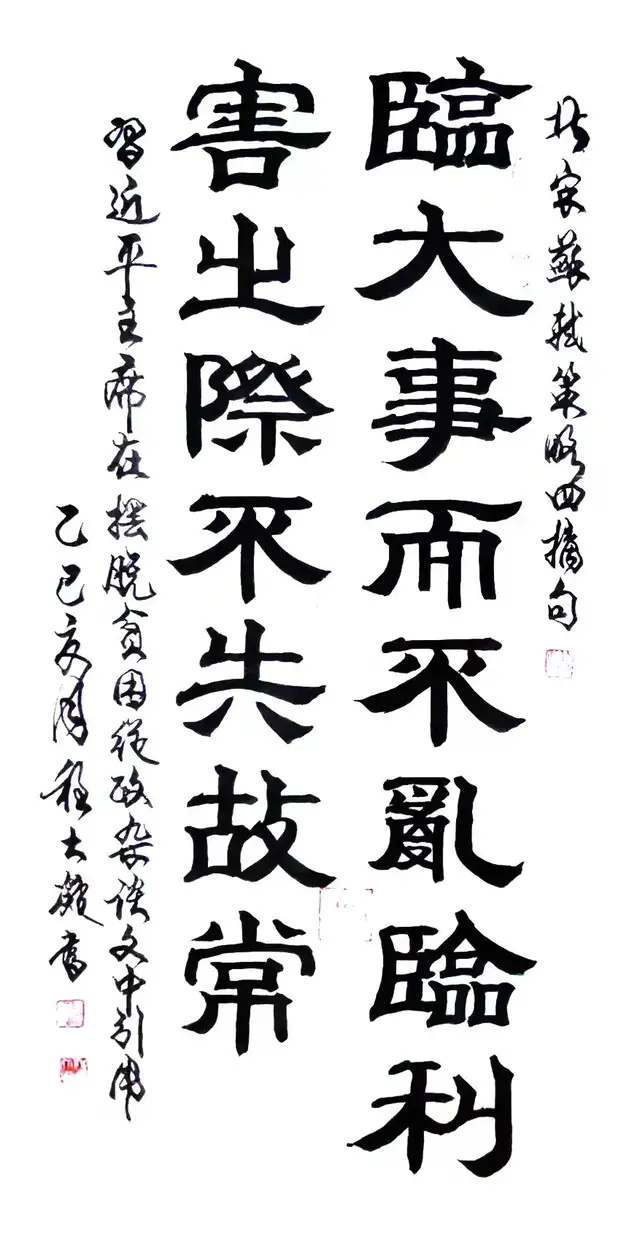 北宋蘇軾策略四摘句
臨大事而不亂臨利
害之際不失故常
習近平主席在摆脱贫困從政杂谈文中引用
乙巳亥月程大書